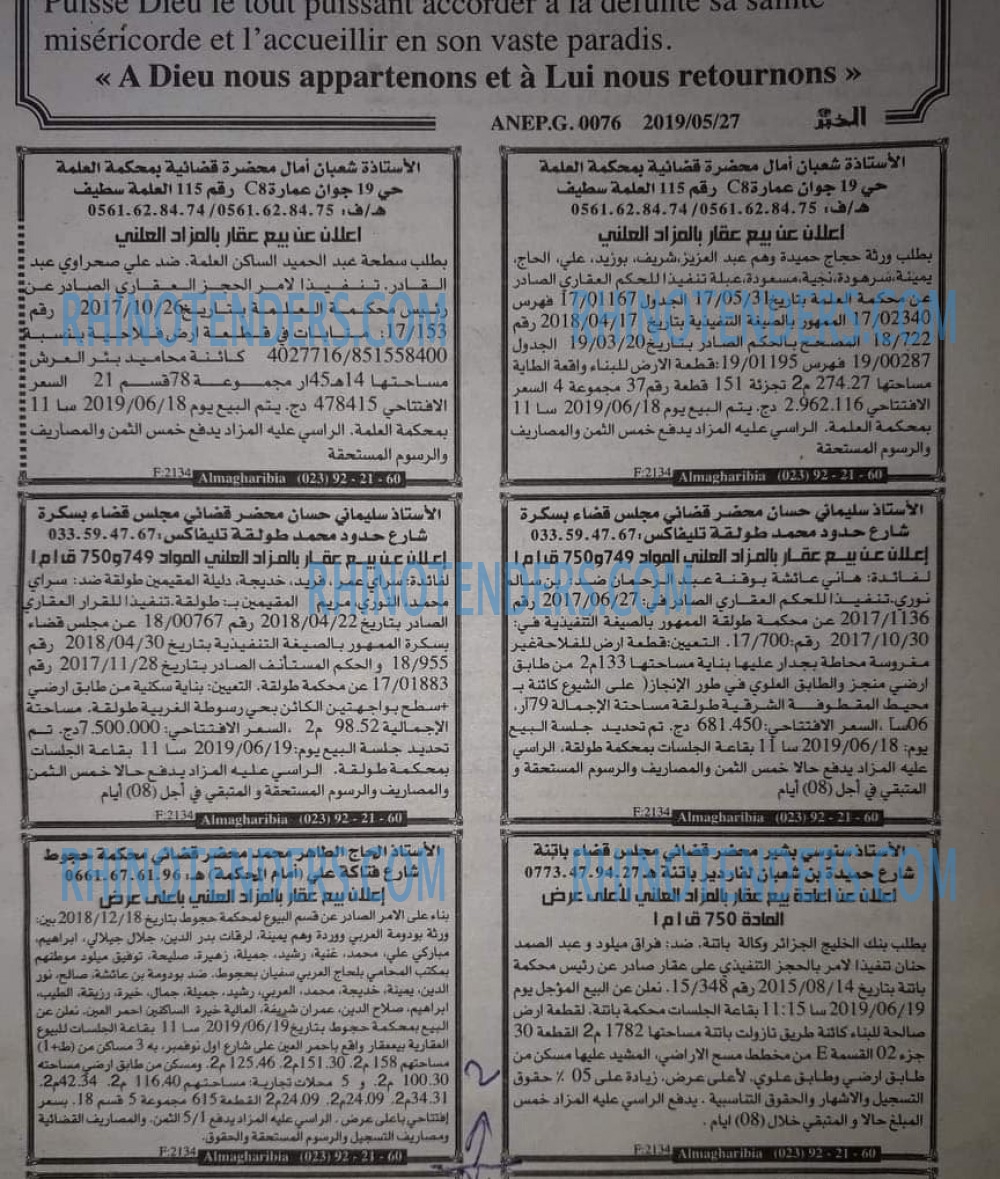 Puisse Dieu le tout puissant accorder à la défunte sa sainte
miséricorde et l'accueillir en son vaste paradis.
« A Dieu nous appartenons et à Lui nous retournons »
ANEP.G. 0076 2019/05/27 الخبر
الأستاذة شعبان أمال محضرة قضائية بمحكمة العلمة
حي 19 جوان عمارة C8 رقم 115 العلمة سطيف
هـ/ف: 0561.62.84.74/0561.62.84.75
اعلان عن بيع عقار بالمزاد العلني
بطلب ورثة حجاج حميدة وهم عبد العزيز،شريف، بوزيد، علي، الحاج،
يمينة،سرهودة،نجية،مسعودة،عبلة تنفيذا للحكم العقاري الصادر
عن محكمة العلمة بتاريخ 17/05/31 الجدول 17/01167 فهرس
17/02340 الممهور بالصيغة التنفيذية بتاريخ 2018/04/17 رقم
18/722 المصحح بالحكم الصادر بتاريخ 19/03/20 الجدول
19/00287 فهرس 19/01195 :قطعة الارض للبناء واقعة الطاية
مساحتها 274.27 م2 تجزئة 151 قطعة رقم37 مجموعة 4 السعر
الافتتاحي 2.962.116 دج. يتم البيع يوم 2019/06/18 سا 11
بمحكمة العلمة. الراسي عليه المزاد يدفع خمس الثمن والمصاريف
والرسوم المستحقة
F:2134 Almagharibia (023) 92 - 21 - 60
الأستاذة شعبان أمال محضرة قضائية بمحكمة العلمة
حي 19 جوان عمارة C8 رقم 115 العلمة سطيف
هـ/ف: 0561.62.84.74/0561.62.84.75
اعلان عن بيع عقار بالمزاد العلني
بطلب سطحة عبد الحميد الساكن العلمة. ضد علي صحراوي عبد
القادر. تنفيذا لامر الحجز العقاري الصادر عن
رئيس محكمة العلمة بتاريخ 2017/10/26 رقم
17/153: عبارات في قطعة ارض فلاحية بنسبة
4027716/851558400 كائنة محاميد بئر العرش
مساحتها 14هـ45ار مجموعة 78قسم 21 السعر
الافتتاحي 478415 دج. يتم البيع يوم 2019/06/18 سا 11
بمحكمة العلمة. الراسي عليه المزاد يدفع خمس الثمن والمصاريف
والرسوم المستحقة
F:2134 Almagharibia (023) 92 - 21 - 60
الأستاذ سليماني حسان محضر قضائي مجلس قضاء بسكرة
شارع حدود محمد طولقة تليفاكس:033.59.47.67
إعلان عن بيع عقار بالمزاد العلني المواد 749و750 ق إ م إ
لفائدة: هاني عائشة بوقنة عبد الرحمان ضد: بن سالم
نوري.تنفيذا للحكم العقاري الصادر في: 2017/06/27 رقم
2017/1136 عن محكمة طولقة الممهور بالصيغة التنفيذية في:
2017/10/30 رقم:17/700. التعيين:قطعة ارض للفلاحة غير
مغروسة محاطة بجدار عليها بناية مساحتها 133م2 من طابق
ارضي منجز والطابق العلوي في طور الإنجاز( على الشيوع كائنة بـ
محيط المقطوفة الشرقية طولقة مساحتة الإجمالة 79آر،
06سآ ،السعر الإفتتاحي: 681.450 دج. تم تحديد جلسة البيع
يوم: 2019/06/18 سا 11 بقاعة الجلسات بمحكمة طولقة، الراسي
عليه المزاد يدفع حالا خمس الثمن والمصاريف والرسوم المستحقة و
المتبقي في أجل (08) أيام
F:2134 Almagharibia (023) 92 - 21 - 60
الأستاذ سليماني حسان محضر قضائي مجلس قضاء بسكرة
شارع حدود محمد طولقة تليفاكس:033.59.47.67
إعلان عن بيع عقار بالمزاد العلني المواد 749و750 ق إ م إ
لفائدة: سراي عمر، فريد، خديجة، دليلة المقيمين طولقة ضد: سراي
محمد، النوري، مريم المقيمين بـ: طولقة.تنفيذا للقرار العقاري
الصادر بتاريخ 2018/04/22 رقم 18/00767 عن مجلس قضاء
بسكرة الممهور بالصيغة التنفيذية بتاريخ 2018/04/30 رقم
18/955 و الحكم المستأنف الصادر بتاريخ 2017/11/28 رقم
17/01883 عن محكمة طولقة. التعيين: بناية سكنية من طابق ارضي
+سطح بواجهتين الكائن بحي رسوطة الغربية طولقة. مساحتة
الإجمالية 98.52 م2 ،السعر الإفتتاحي:7.500.000دج. تم
تحديد جلسة البيع يوم:2019/06/19 سا 11 بقاعة الجلسات
بمحكمة طولقة. الراسي عليه المزاد يدفع حالا خمس الثمن
والمصاريف والرسوم المستحقة و المتبقي في أجل (08) أيام
F:2134 Almagharibia (023) 92 - 21 - 60
الأستاذ سنوسي بشير محضر قضائي مجلس قضاء باتنة
شارع حميدة بن شعبان لناردير باتنة هـ 0773.47.94.27
إعلان عن اعادة بيع عقار بالمزاد العلني لأعلى عرض
المادة 750 ق إ م إ
بطلب بنك الخليج الجزائر وكالة باتنة. ضد: فراق ميلود و عبد الصمد
حنان تنفيذا لامر بالحجز التنفيذي على عقار صادر عن رئيس محكمة
باتنة بتاريخ 2015/08/14 رقم 15/348. نعلن عن البيع المؤجل يوم
2019/06/19 سا 11:15 بقاعة الجلسات محكمة باتنة. لقطعة ارض
صالحة للبناء كائنة طريق تازولت باتنة مساحتها 1782 م2 القطعة 30
جزء 02 القسمة E من مخطط مسح الاراضي، المشيد عليها مسكن من
طابق ارضي وطابق علوي. لأعلى عرض، زيادة على 05 ٪ حقوق
التسجيل والاشهار والحقوق التناسبية . يدفع الراسي عليه المزاد خمس
المبلغ حالا و المتبقي خلال (08) أيام .
F:2134 Almagharibia (023) 92 - 21 - 60
الأستاذ الحاج الطاهر محمد محضر قضائي محكمة حجوط
شارع فتاكة علي (أمام المحكمة) هـ: 0661.67.61.96
إعلان بيع عقار بالمزاد العلني باعلى عرض
بناء على الامر الصادر عن قسم البيوع لمحكمة حجوط بتاريخ 2018/12/18 بين:
ورثة بودومة العربي ووردة وهم يمينة، لرقات بدر الدين، جلال جيلالي، ابراهيم،
مباركي علي، محمد، غنية، رشيد، جميلة، زهيرة، صليحة، توفيق ميلود موطنهم
بمكتب المحامي بلحاج العربي سفيان بحجوط. ضد بودومة بن عائشة، صالح، نور
الدين، يمينة، خديجة، محمد، العربي، رشيد، جميلة، جمال، خيرة، رزيقة، الطيب،
ابراهيم، صلاح الدين، عمران شريفة، العالية خيرة الساكنين احمر العين. نعلن عن
البيع بمحكمة حجوط بتاريخ 2019/06/19 سا 11 بقاعة الجلسات للبيوع
العقارية بيعقار واقع باحمر العين على شارع اول نوفمبر، به 3 مساكن من (ط+1)
مساحتهم 158 م2، 151.30 م2، 125.46 م2، ومسكن من طابق ارضي مساحته
100.30 م2. و 5 محلات تجارية: مساحتهم 116.40 م2، 42.34م2،
34.31م2، 24.09م2، 24.09م2 القطعة 615 مجموعة 5 قسم 18. بسعر
إفتتاحي باعلى عرض . الراسي عليه المزاد يدفع 5/1 الثمن، والمصاريف القضائية
ومصاريف التسجيل والرسوم المستحقة والحقوق.
F:2134 Almagharibia (023) 92 - 21 - 60
2
RHINOTENDERS.COM
RHINOTENDERS.COM
RHINOTENDERS.COM
RHINOTENDERS.COM
RHINOTENDERS.COM